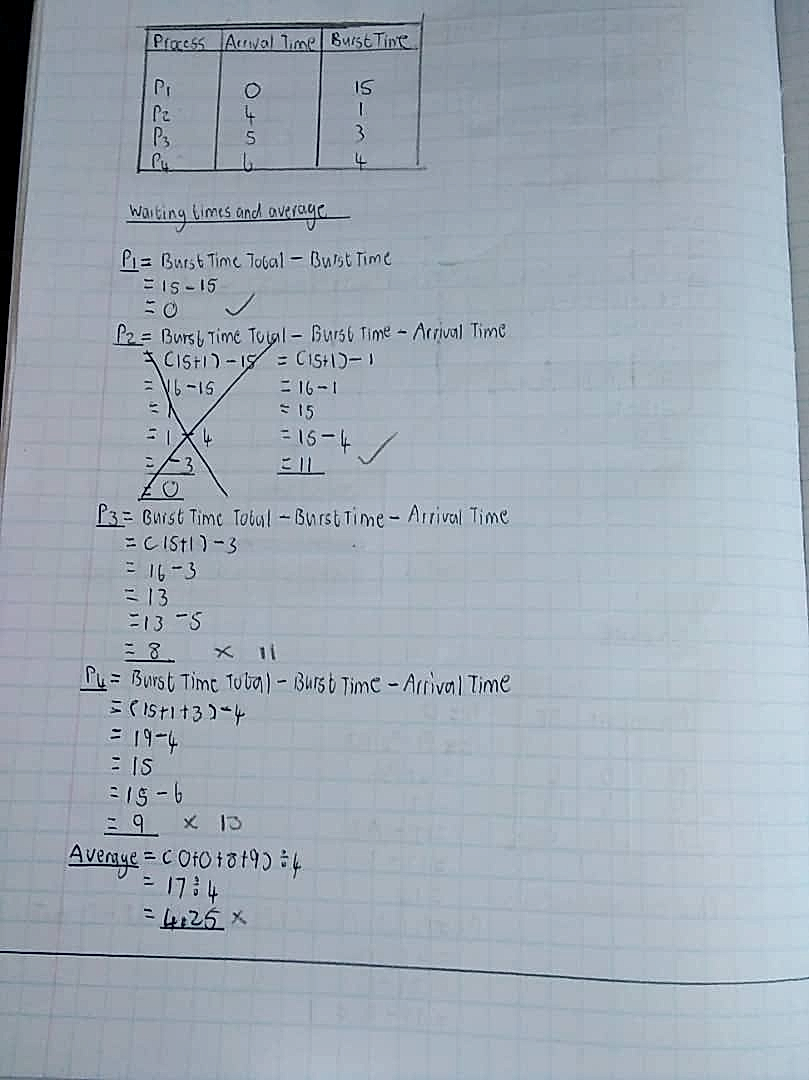 Process Arrival Time Burst Time
P1 0 15
P2 4 1
P3 5 3
P4 6 4
Waiting times and average
P1 = Burst Time Total - Burst Time
= 15 - 15
= 0 ✓
P2 = Burst Time Total - Burst Time - Arrival Time
= (15+1) - 15 = (15+1) - 1
= 16 - 15 = 16 - 1
= 1 = 15
= 1 - 4 = 15 - 4
= -3 = 11 ✓
= 0
P3 = Burst Time Total - Burst Time - Arrival Time
= (15+1) - 3
= 16 - 3
= 13
= 13 - 5
= 8 × 11
P4 = Burst Time Total - Burst Time - Arrival Time
= (15+1+3) - 4
= 19 - 4
= 15
= 15 - 6
= 9 × 13
Average = (0+0+8+9) ÷ 4
= 17 ÷ 4
= 4.25 ×